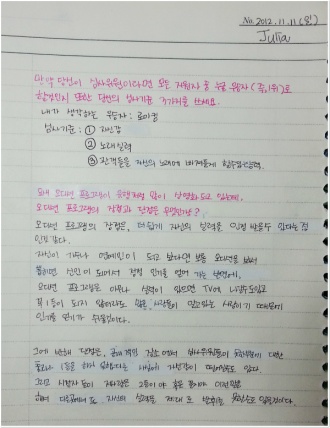 No. 2012. 11. 11 (일)
Julia
만약 당신이 심사위원이라면 모든 지원자 중 누굴 우승자(1위)로
할것인지 또한 당신의 심사기준 3가지를 쓰세요.
내가 생각하는 우승자 : 로이킴
심사기준 : ① 자신감
② 노래실력
③ 관객들을 자신의 노래에 빠져들게 할수있는능력.
요새 오디션 프로그램이 유행처럼 많이 상영하고 있는데,
오디션 프로그램의 장점과 단점은 무엇인가?
오디션 프로그램의 장점은, 더 쉽게 자신의 실력을 인정 받을수 있다는 점
인것 같다.
자신이 가수나 연예인이 되고 싶다면 보통 오디션을 보러
신인이 되어서 점점 인기를 얻어 가는 반면에,
오디션 프로그램은 아무나 실력이 있으면 TV에 나갈수도있고
꼭 1등이 되지 않더라도 많은 사람들이 알고있는 사람이기 때문에
인기를 얻기가 쉬울것이다.
그에 반해 단점은, 심사위원들이 대한
1등을 하지 못했다는 사실에 자신감이 떨어질수도 있다.
그리고 시청자들이
하여 자신의 실력을 제대로 발휘를 못할수도 있을것이다.